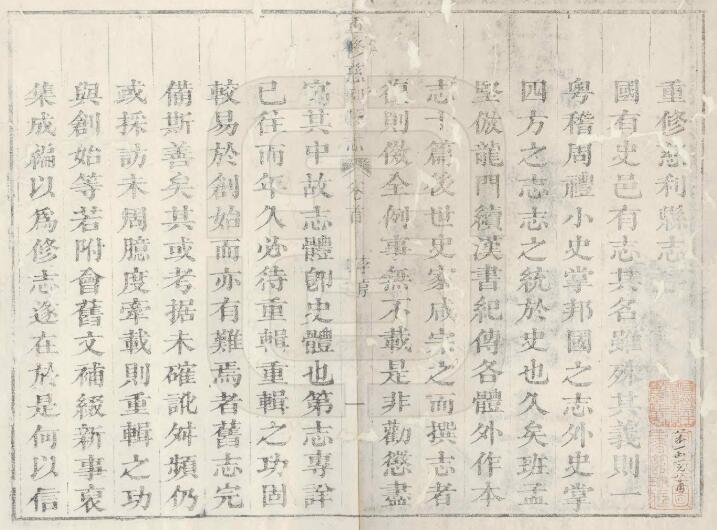 重修惠利縣志序
國有史邑有志其名雖殊其義則一
粵稽周禮小史掌邦國之志外史掌
四方之志志之統於史也久矣班孟
堅倣龍門續漢書紀傳各體外作本
志十篇後世史家咸宗之而撰志者
復則倣全例事無不載是非勸懲盡
卷首
一
寓其中故志體卽史體也第志專詮
已往而年久必待重輯重輯之功固
較易於創始而亦有難焉者舊志完
備斯善矣其或考据未確訛舛頻仍
或採訪未周臆度牽載則重輯之功
與創始等若附會舊文補綴新事裒
集成編以爲修志遂在於是何以信